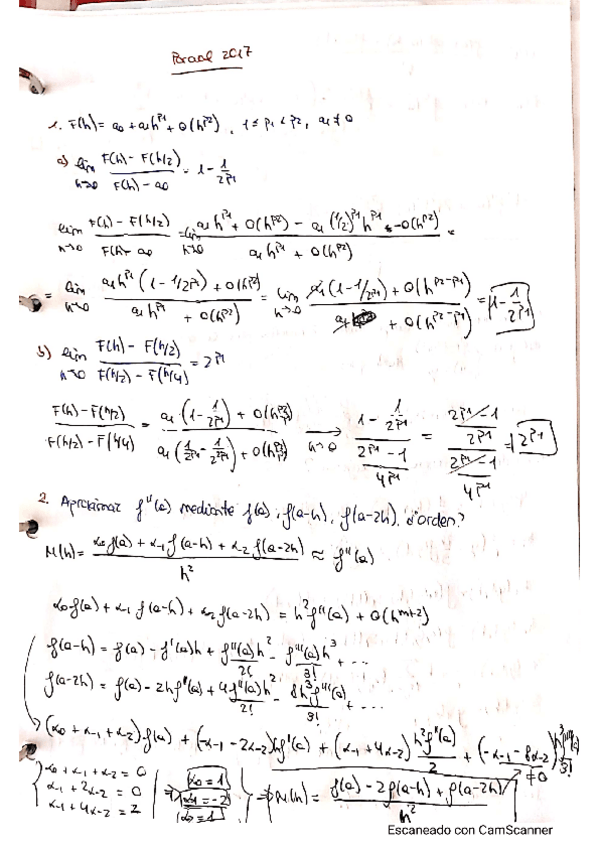 Parcial 2017
1. F(h) = a₀ + a₁h^p₁ + O(h^p₂), 1 ≤ p₁ < p₂, a₁ ≠ 0
a) lim h→0 (F(h) - F(h/2)) / (F(h) - a₀) = 1 - 1/2^p₁
lim h→0 (F(h) - F(h/2)) / (F(h) - a₀) = lim h→0 (a₁h^p₁ + O(h^p₂) - a₁(1/2)^p₁ h^p₁ - O(h^p₂)) / (a₁h^p₁ + O(h^p₂)) =
= lim h→0 (a₁h^p₁(1 - 1/2^p₁) + O(h^p₂)) / (a₁h^p₁ + O(h^p₂)) = lim h→0 (a₁(1 - 1/2^p₁) + O(h^(p₂-p₁))) / (a₁ + O(h^(p₂-p₁))) = 1 - 1/2^p₁
b) lim h→0 (F(h) - F(h/2)) / (F(h/2) - F(h/4)) = 2^p₁
(F(h) - F(h/2)) / (F(h/2) - F(h/4)) = (a₁·(1 - 1/2^p₁) + O(h^(p₂-p₁))) / (a₁(1/2^p₁ - 1/2^2p₁) + O(h^(p₂-p₁))) → h→0 (1 - 1/2^p₁) / ((2^p₁ - 1)/4^p₁) = ((2^p₁ - 1)/2^p₁) / ((2^p₁ - 1)/4^p₁) = 2^p₁
2. Aproximar f''(a) mediante f(a), f(a-h), f(a-2h), ¿orden?
N(h) = (α₀f(a) + α₋₁f(a-h) + α₋₂f(a-2h)) / h² ≈ f''(a)
α₀f(a) + α₋₁f(a-h) + α₋₂f(a-2h) = h²f''(a) + O(h^(m+2))
f(a-h) = f(a) - f'(a)h + f''(a)h²/2! - f'''(a)h³/3! + ...
f(a-2h) = f(a) - 2hf'(a) + 4f''(a)h²/2! - 8h³f'''(a)/3! + ...
(α₀ + α₋₁ + α₋₂)·f(a) + (-α₋₁ - 2α₋₂)hf'(a) + (α₋₁ + 4α₋₂) h²f''(a)/2 + (-α₋₁ - 8α₋₂) h³f'''(a)/3!
≠0
α₀ + α₋₁ + α₋₂ = 0
α₋₁ + 2α₋₂ = 0
α₋₁ + 4α₋₂ = 2
⇒ α₀ = 1
α₋₁ = -2
α₋₂ = 1
⇒ N(h) = (f(a) - 2f(a-h) + f(a-2h)) / h²
Escaneado con CamScanner